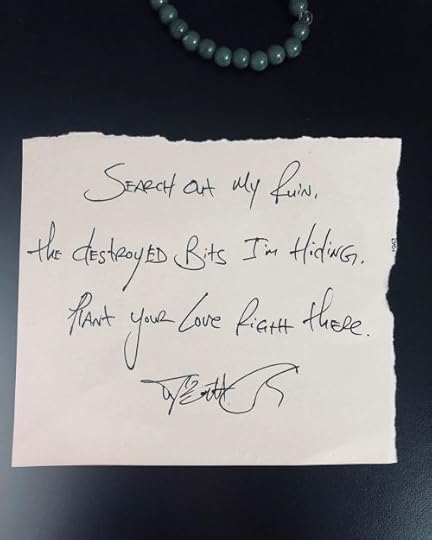 Search out my Ruin,
the destroyed Bits I'm Hiding.
Plant your Love Right there.